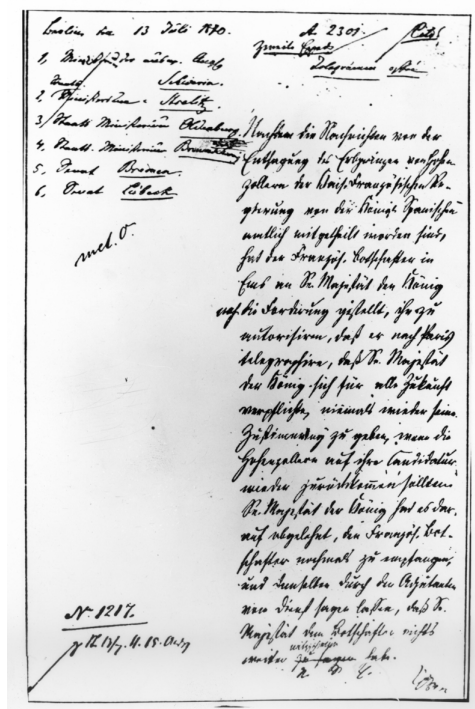 Berlin, den 13 Juli 1870.
A. 2301.
Cito!
zweite Exped.
Telegramm
1, Minist. der ausw. Angl.
Schwerin.
2, Ministerium - Strelitz
3, Staats Ministerium Oldenburg.
4, Staats-Ministerium Braunschweig
5, Senat Bremen.
6, Senat Lübeck
met. 
Nachdem die Nachrichten von der
Entsagung des Erbprinzen von Hohen
zollern der Kais. Französischen Re-
gierung von der Königl. Spanischen
amtlich mitgetheilt worden sind,
hat der Französ. Botschafter in
Ems an Se. Majestät den König
noch die Forderung gestellt, ihn zu
autorisiren, daß er nach Paris
telegraphire, daß Se. Majestät
der König sich für alle Zukunft
verpflichte, niemals wieder seine
Zustimmung zu geben, wenn die
Hohenzollern auf ihre Candidatur
wieder zurückkommen sollten.
Se. Majestät der König hat es dar-
auf abgelehnt, den Französ. Bot-
schafter nochmals zu empfangen,
und demselben durch den Adjutanten
vom Dienst sagen lassen, daß Se.
Majestät dem Botschafter nichts
mitzutheilen
weiter zu sagen habe.
Nr 1217.